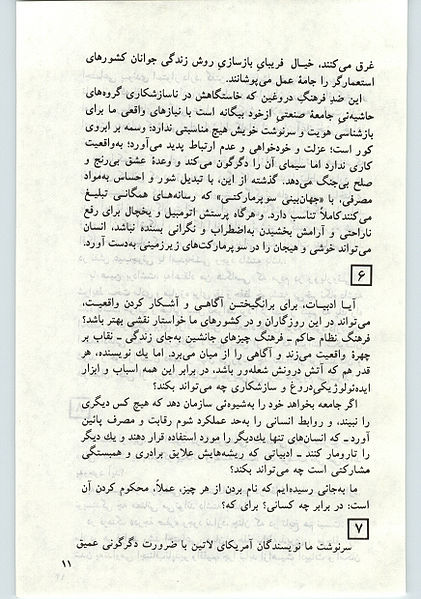 غرق می‌کنند، خیـال فریبای بازسازیِ روش زندگی جوانان کشورهای
استعمارگر را جامهٔ عمل می‌پوشانند.
این ضدِ فرهنگِ دروغین که خاستگاهش در ناسازشکاری گروه‌های
حاشیه‌ئی جامعهٔ صنعتیِ ازخود بیگانه است با نیازهای واقعی ما برای
بازشناسیِ هویت و سرنوشت خویش هیچ مناسبتی ندارد: وسمه بر ابروی
کور است؛ عزلت و خودخواهی و عدم ارتباط پدید می‌آورد؛ به‌واقعیت
کاری ندارد اما سیمای آن را دگرگون می‌کند و وعدهٔ عشق بی‌رنج و
صلح بی‌جنگ می‌دهد. گذشته از این، با تبدیل شور و احساس به‌مواد
مصرفی، با «جهان‌بینی سوپرمارکتی» که رسانه‌های همگانـی تبلیـغ
می‌کنندکاملاً تناسب دارد. و هرگاه پرستش اتومبیل و یخچال برای رفع
ناراحتی و آرامش بخشیدن به‌اضطراب و نگرانی بسنده نباشد، انسان
می‌تواند خوشی و هیجان را در سوپرمارکت‌های زیرزمینی به‌دست آورد.
۶
آیـا ادبیـات، برای برانگیختـن آگاهـی و آشـکار کردن واقعیـت،
می‌تواند در این روزگاران و در کشورهای ما خواستار نقشی بهتر باشد؟
فرهنگ نظام حاکم ـ فرهنگ چیزهای جانشین به‌جای زندگی ـ نقاب بر
چهرهٔ واقعیت می‌زند و آگاهی را از میان می‌برد. اما یك نویسنده، هر
قدر هم که آتش درونش شعله‌ور باشد، در برابر این همه اسباب و ابزار
ایده‌ئولوژیکیِ‌دروغ و سازشکاری چه می‌تواند بکند؟
اگر جامعه بخواهد خود را به‌شیوه‌ئی سازمان دهد که هیچ کس دیگری
را نبیند، و روابط انسانی را به‌حد عملکرد شوم رقابت و مصرف پائین
آورد ـ که انسان‌های تنها یك‌دیگر را مورد استفاده قرار دهند و یك دیگر
را تارومار کنند ـ ادبیاتی که ریشه‌هایش علایق برادری و همبستگی
مشارکتی است چه می‌تواند بکند؟
ما به‌جائی رسیده‌ایم که نام بردن از هر چیز، عملاً، محکوم کردن آن
است: در برابر چه کسانی؟ برای که؟
۷
سرنوشت ما نویسندگان آمریکای لاتین با ضرورت دگرگونی عمیق
۱۱